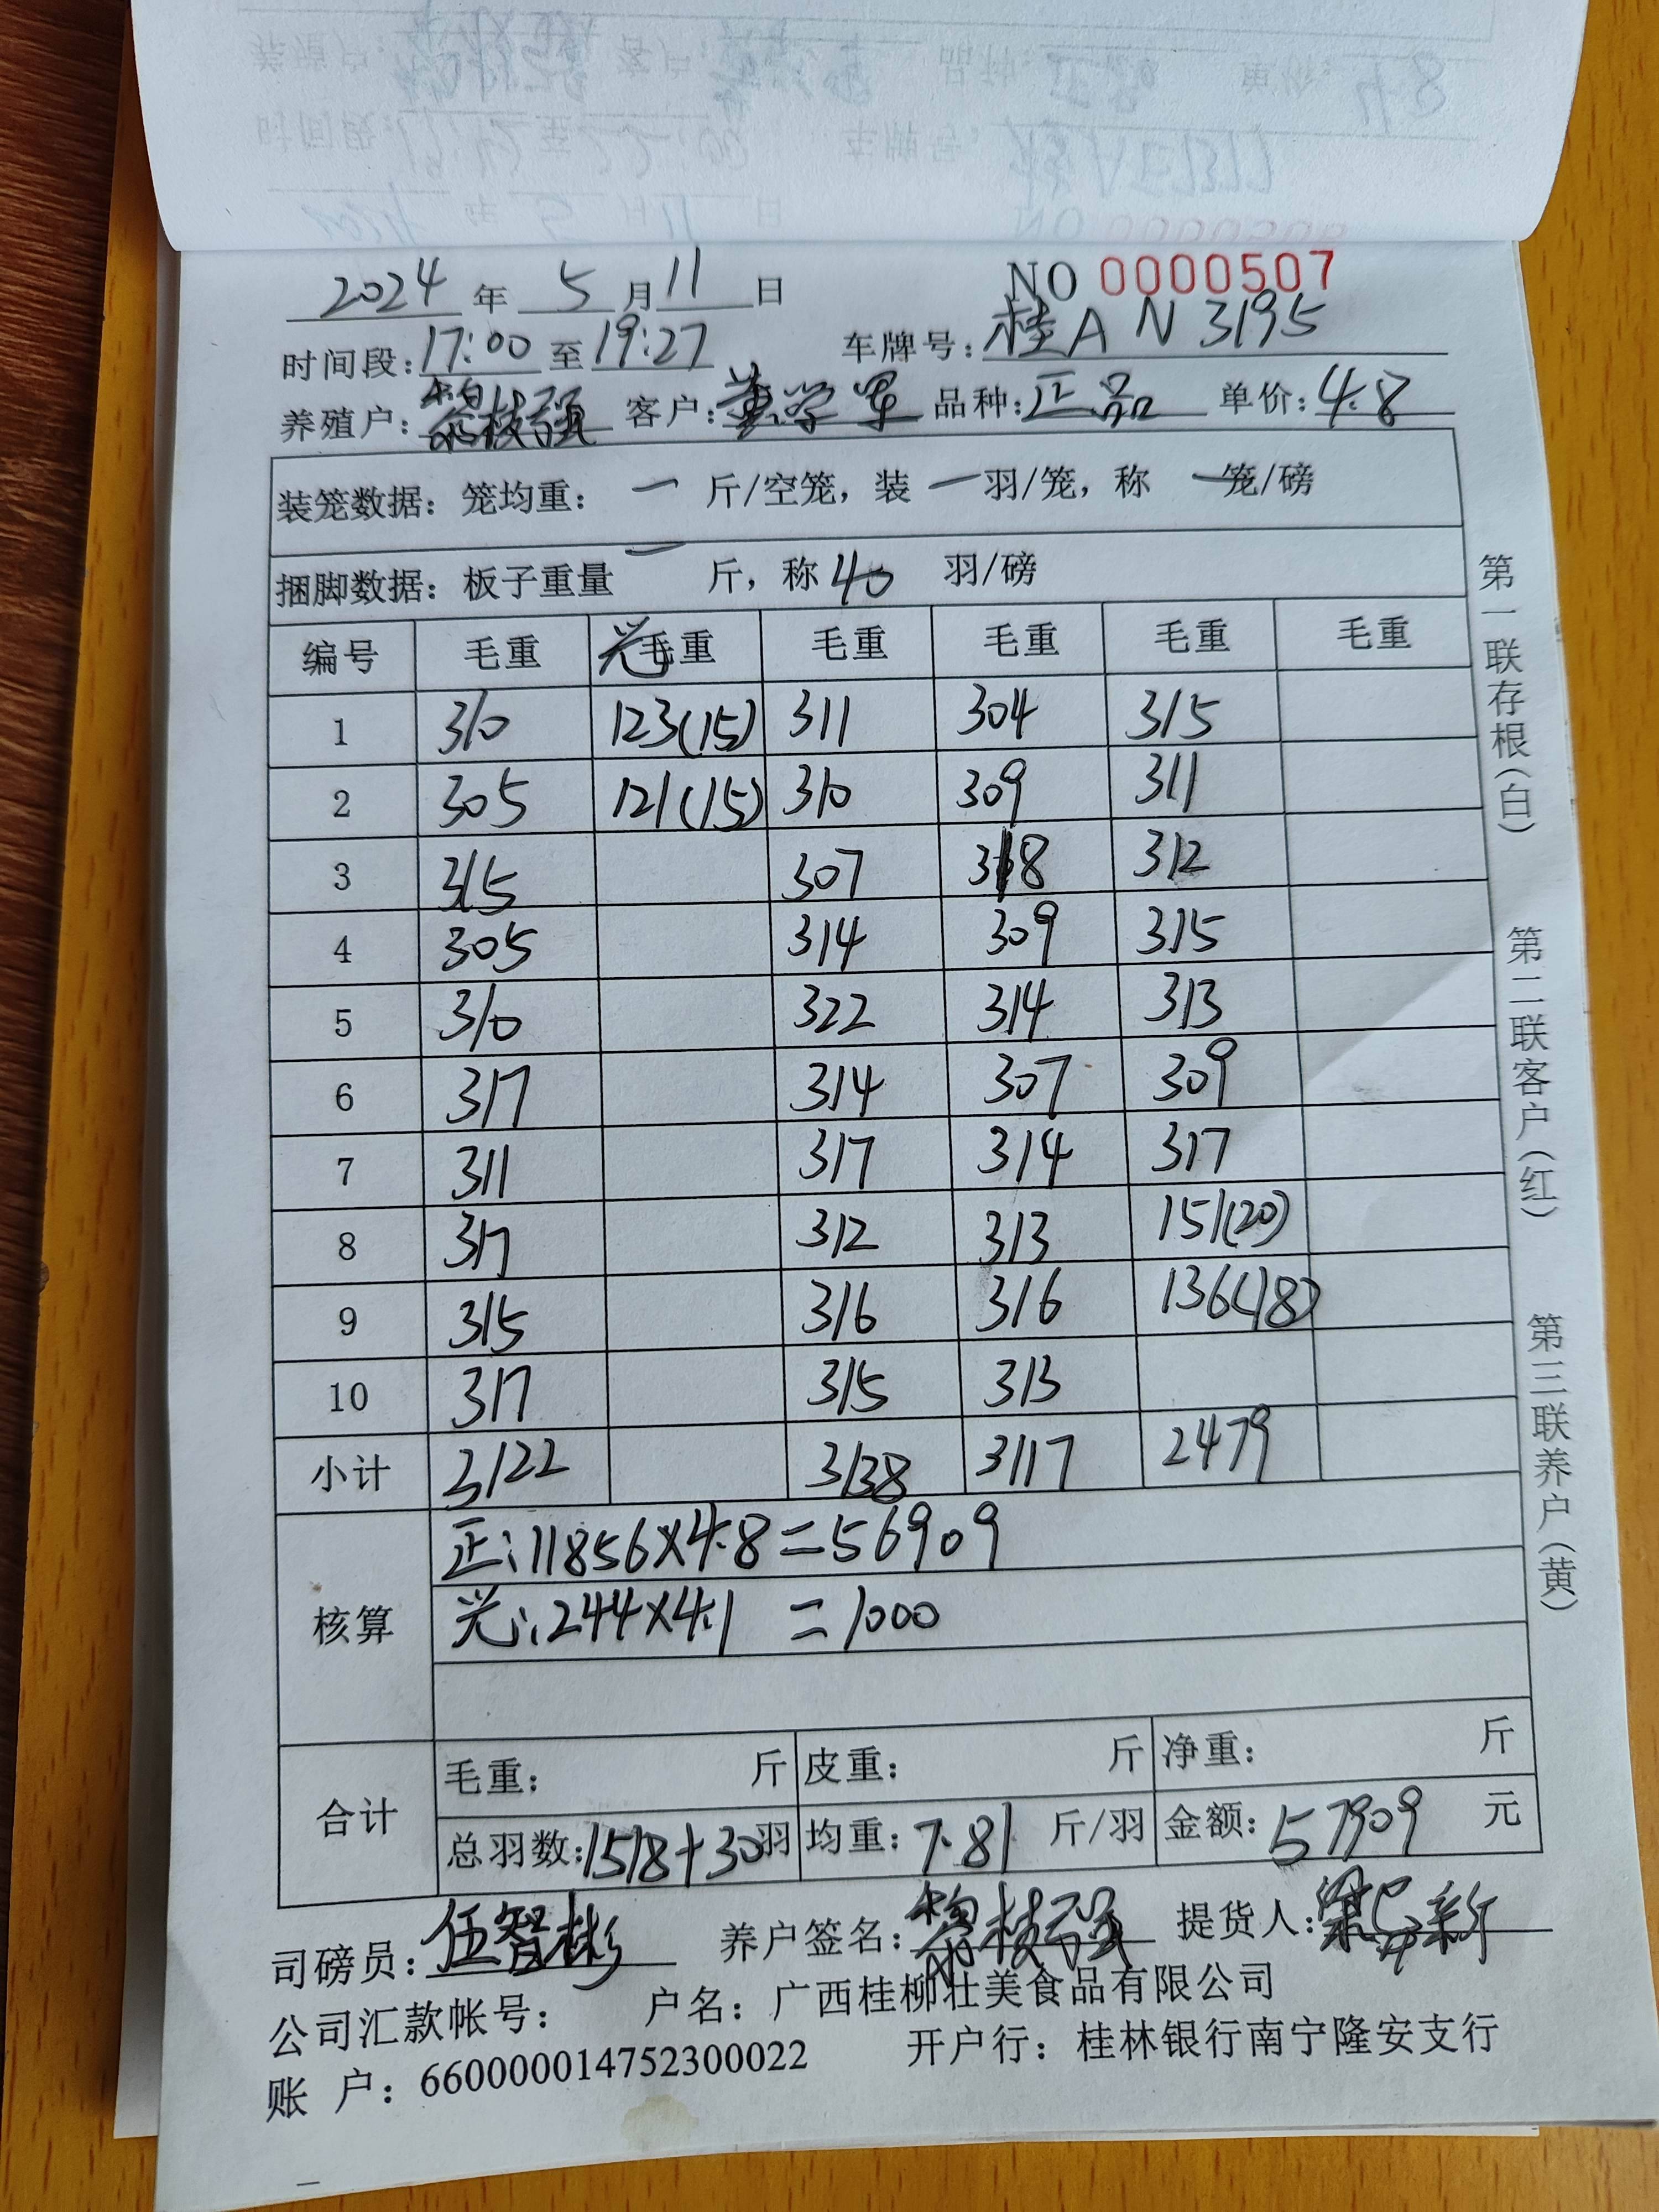 2024 年 5 月 11 日 NO 0000507
时间段: 17:00 至 19:27 车牌号: 桂A N3195
养殖户: 枝强 客户: 黄学军 品种: 正品 单价: 4.8
装笼数据: 笼均重: 一 斤/空笼, 装 一 羽/笼, 称 一 笼/磅
捆脚数据: 板子重量 一 斤, 称 40 羽/磅
编号 毛重 光毛重 毛重 毛重 毛重 毛重
1 310 123(15) 311 304 315
2 305 121(15) 310 309 311
3 315 307 318 312
4 305 314 309 315
5 310 322 314 313
6 317 314 307 309
7 311 317 314 317
8 317 312 313 151(20)
9 315 316 316 136(18)
10 317 315 313
小计 3122 3138 3117 2479
核算
正: 11856×4.8=56909
光: 244×4.1 =1000
合计
毛重: 斤 皮重: 斤 净重: 斤
总羽数: 1518+30羽 均重: 7.81 斤/羽 金额: 57909 元
司磅员: 伍智彬 养户签名: 枝强 提货人: 新
公司汇款帐号: 户名: 广西桂柳壮美食品有限公司
账 户: 660000014752300022 开户行: 桂林银行南宁隆安支行
第一联存根(白) 第二联客户(红) 第三联养户(黄)